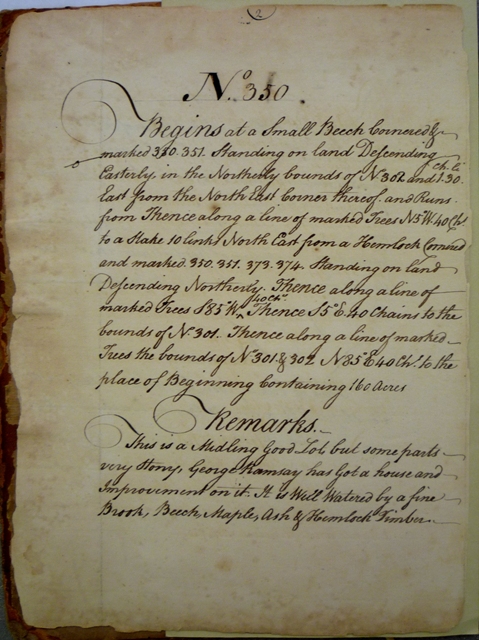 2
No. 350.
Begins at a Small Beech Cornered &
marked 350. 351. Standing on land Descending
Easterly in the Northerly bounds of No 302 and 1.30 Ch. Li
East from the North East Corner thereof. and Runs
from Thence along a line of marked Trees N5°W. 40 Chs
to a Stake 10 links North East from a Hemlock Cornered
and marked. 350. 351. 373. 374. Standing on land
Descending Northerly. Thence along a line of
marked Trees S85°W. 40 Chs. Thence S5°E. 40 Chains to the
bounds of No. 301. Thence along a line of marked
Trees the bounds of No 301 & 302 N85°E 40 Chs. to the
place of Beginning Containing 160 Acres
Remarks.
This is a Midling Good Lot, but some parts
very Stony, George Ramsay has Got a house and
Improvement on it. It is Well Watered by a fine
Brook, Beech, Maple, Ash & Hemlock Timber.